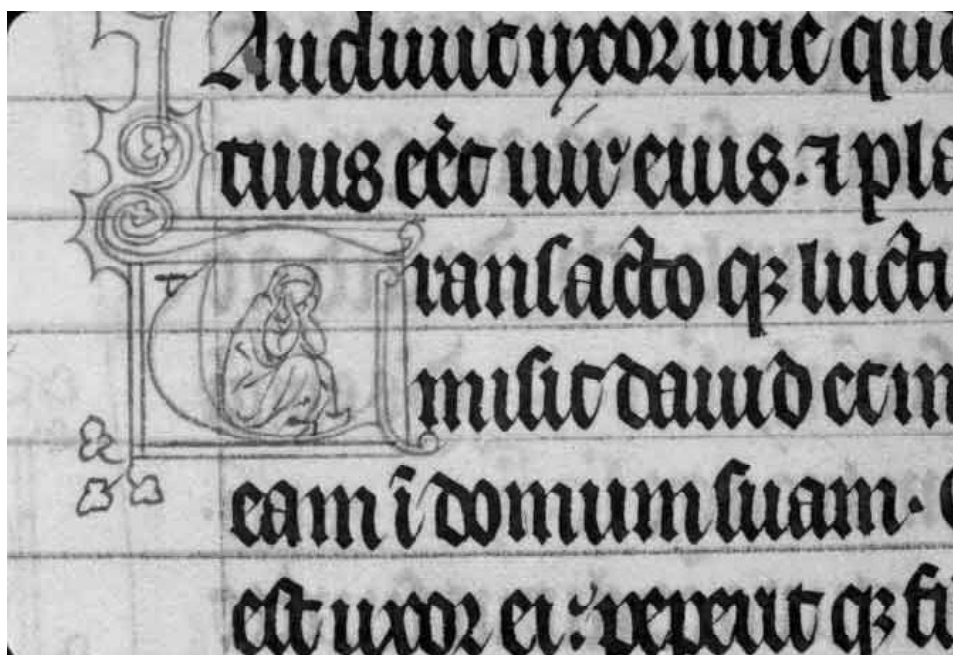 Audiuit uxor urie quo
tuus eēt uir eius. ⁊ pla
Transacto qȝ luctu
misit dauid et in
eam ī domum suam.
est uxor ei: peperit qȝ fi